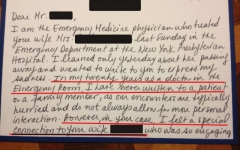 Dear Mr.
I am the Emergency Medicine physician who treated
your wife Mrs. last Sunday in the
Emergency Department at the New York Presbyterian
Hospital. I learned only yesterday about her passing
away and wanted to write to you to express my
sadness. In my twenty years as a doctor in the
Emergency Room, I have never written to a patient
or a family member, as our encounters are typically
hurried and do not always allow for more personal
interaction. However, in your case, I felt a special
connection to your wife who was so engaging